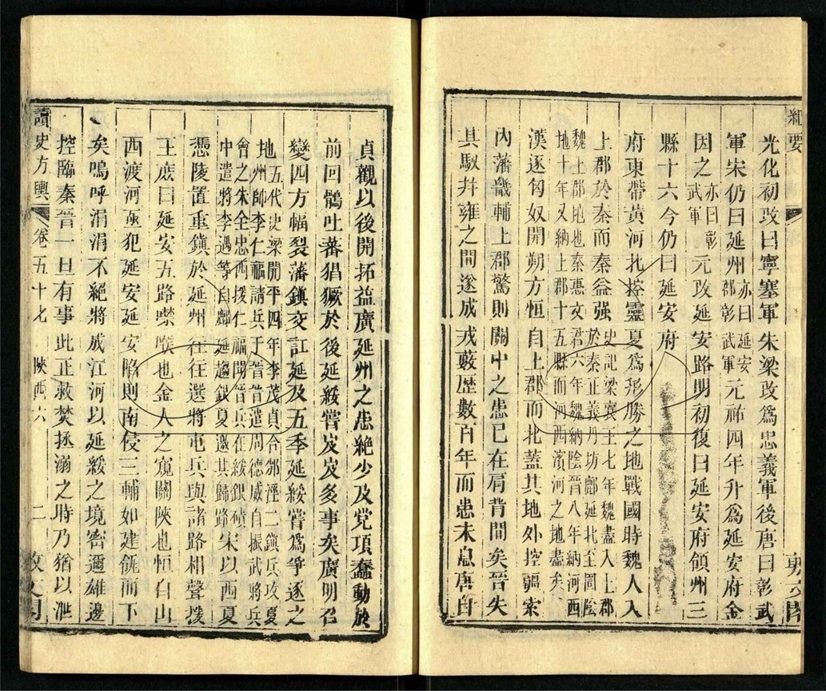 紀要
光化初改曰寧塞軍朱梁改爲忠義軍後唐曰彰武
軍宋仍曰延州亦曰延安郡彰武軍元祐四年升爲延安府金
因之亦曰彰武軍元改延安路明初復曰延安府領州三
縣十六今仍曰延安府
府東帶黃河北控靈夏爲形勝之地戰國時魏人入
上郡於秦而秦益强史記梁襄王七年魏盡入上郡於秦正義丹坊鄜延北至固陰
魏上郡地也秦惠文君六年魏納陰晉八年納河西地十年又納上郡十五縣而河西濱河之地盡矣
漢逐匈奴開朔方恒自上郡而北蓋其地外控疆索
內藩畿輔上郡驚則關中之患已在肩背間矣晉失
其馭幷雍之間遂成戎藪歷數百年而患未息唐自
貞觀以後開拓益廣延州之患絶少及党項蠢動於
前回鶻吐蕃猖獗於後延綏嘗岌岌多事矣廣明召
變四方幅裂藩鎮交訌延及五季延綏嘗爲爭逐之
地五代史梁開平四年李茂貞合邠涇二鎮兵攻夏州師李仁福請兵于晉晉遣周德威自振武將兵
會之朱全忠西援仁福聞晉兵在綏銀磧中遣將李遇等自鄜延趨銀夏邀其歸路宋以西夏
憑陵置重鎮於延州往往選將屯兵與諸路相聲援
王庶曰延安五路襟喉也金人之窺關陜也恒自山
西渡河亟犯延安延安陷則南侵三輔如建瓴而下
矣嗚呼涓涓不絶將成江河以延綏之境密邇雄邊
控臨秦晉一旦有事此正救焚拯溺之時乃猶以泄
讀史方輿
卷五十七
陜西六
二
敷文閣